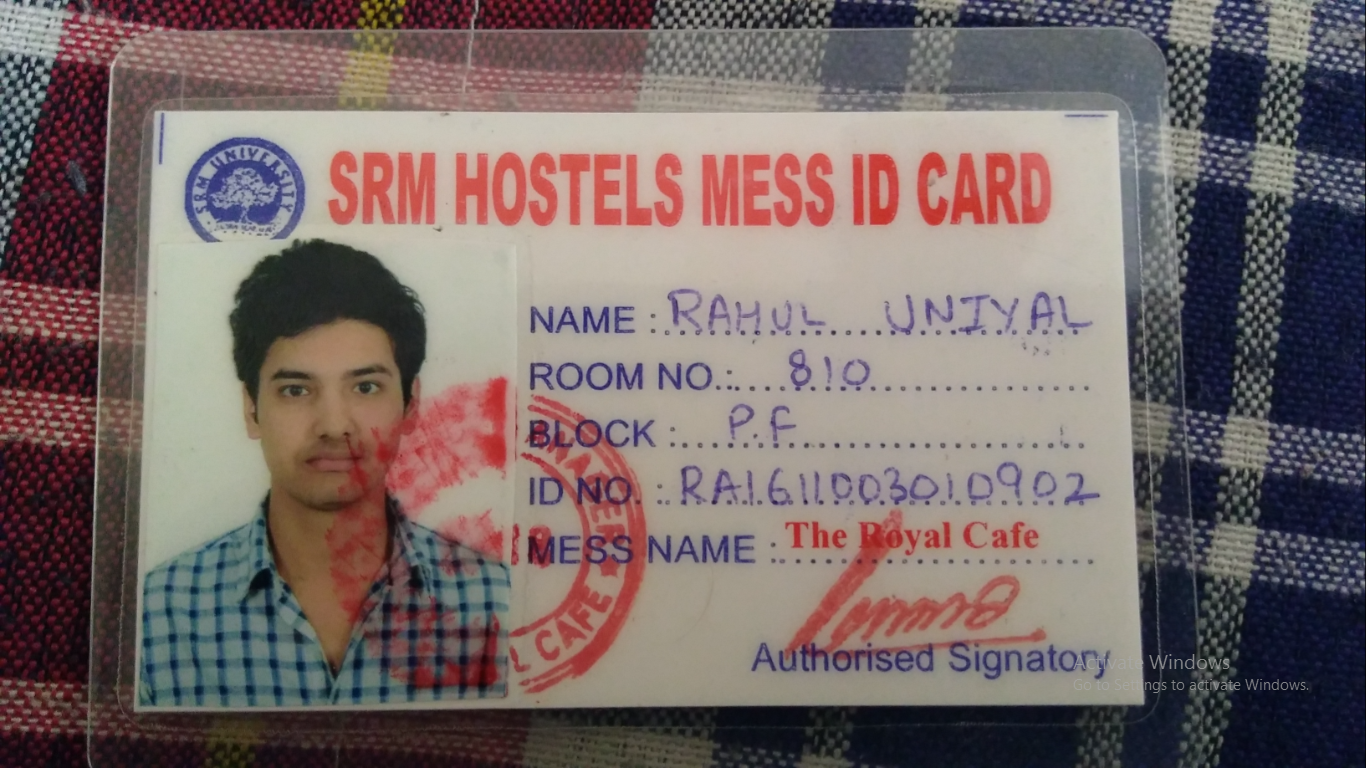 SRM UNIVERSITY
SRM HOSTELS MESS ID CARD
NAME : RAHUL UNIYAL
ROOM NO.: 810
BLOCK : P.F
ID NO. : RA1611003010902
MESS NAME : The Royal Cafe
CAFE
Authorised Signatory
Activate Windows
Go to Settings to activate Windows.